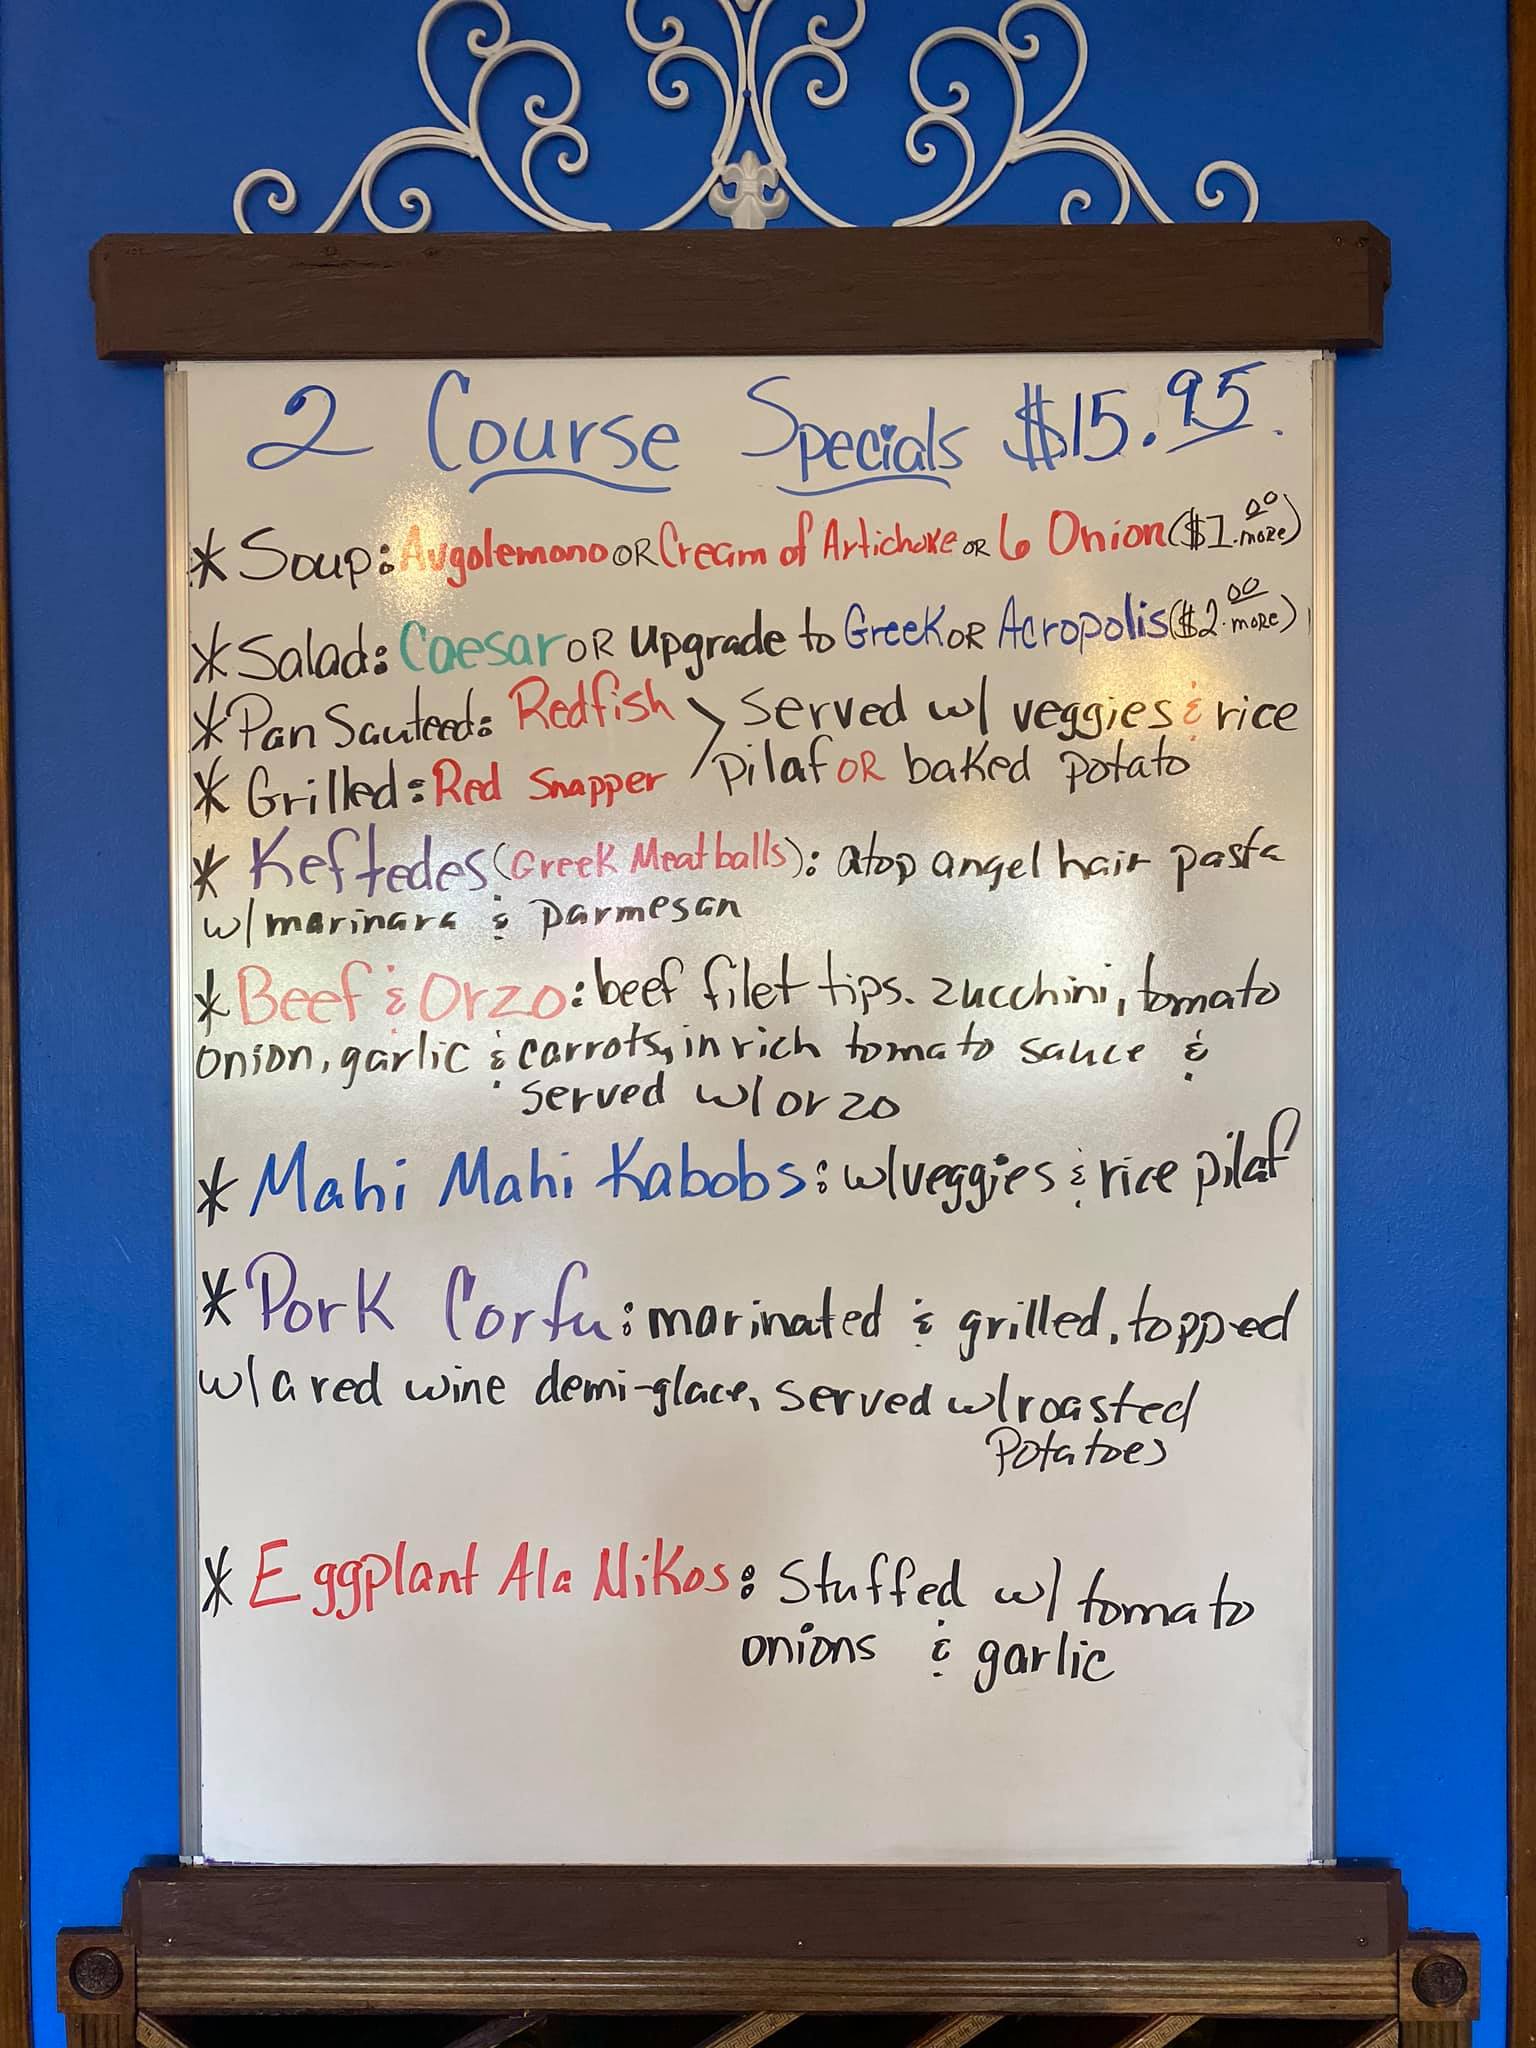 2 Course Specials $15.95
* Soup: Avgolemono OR Cream of Artichoke OR 6 Onion ($1.00 more)
* Salad: Caesar OR Upgrade to Greek OR Acropolis ($2.00 more)
* Pan Sauteed: Redfish > Served w/ veggies & rice
* Grilled: Red Snapper / pilaf OR baked potato
* Keftedes (Greek Meatballs): atop angel hair pasta
w/ marinara & parmesan
* Beef & Orzo: beef filet tips. zucchini, tomato
onion, garlic & carrots, in rich tomato sauce &
served w/ orzo
* Mahi Mahi Kabobs: w/ veggies & rice pilaf
* Pork Corfu: marinated & grilled, topped
w/ a red wine demi-glace, served w/ roasted
Potatoes
* Eggplant Ala Nikos: Stuffed w/ tomato
onions & garlic